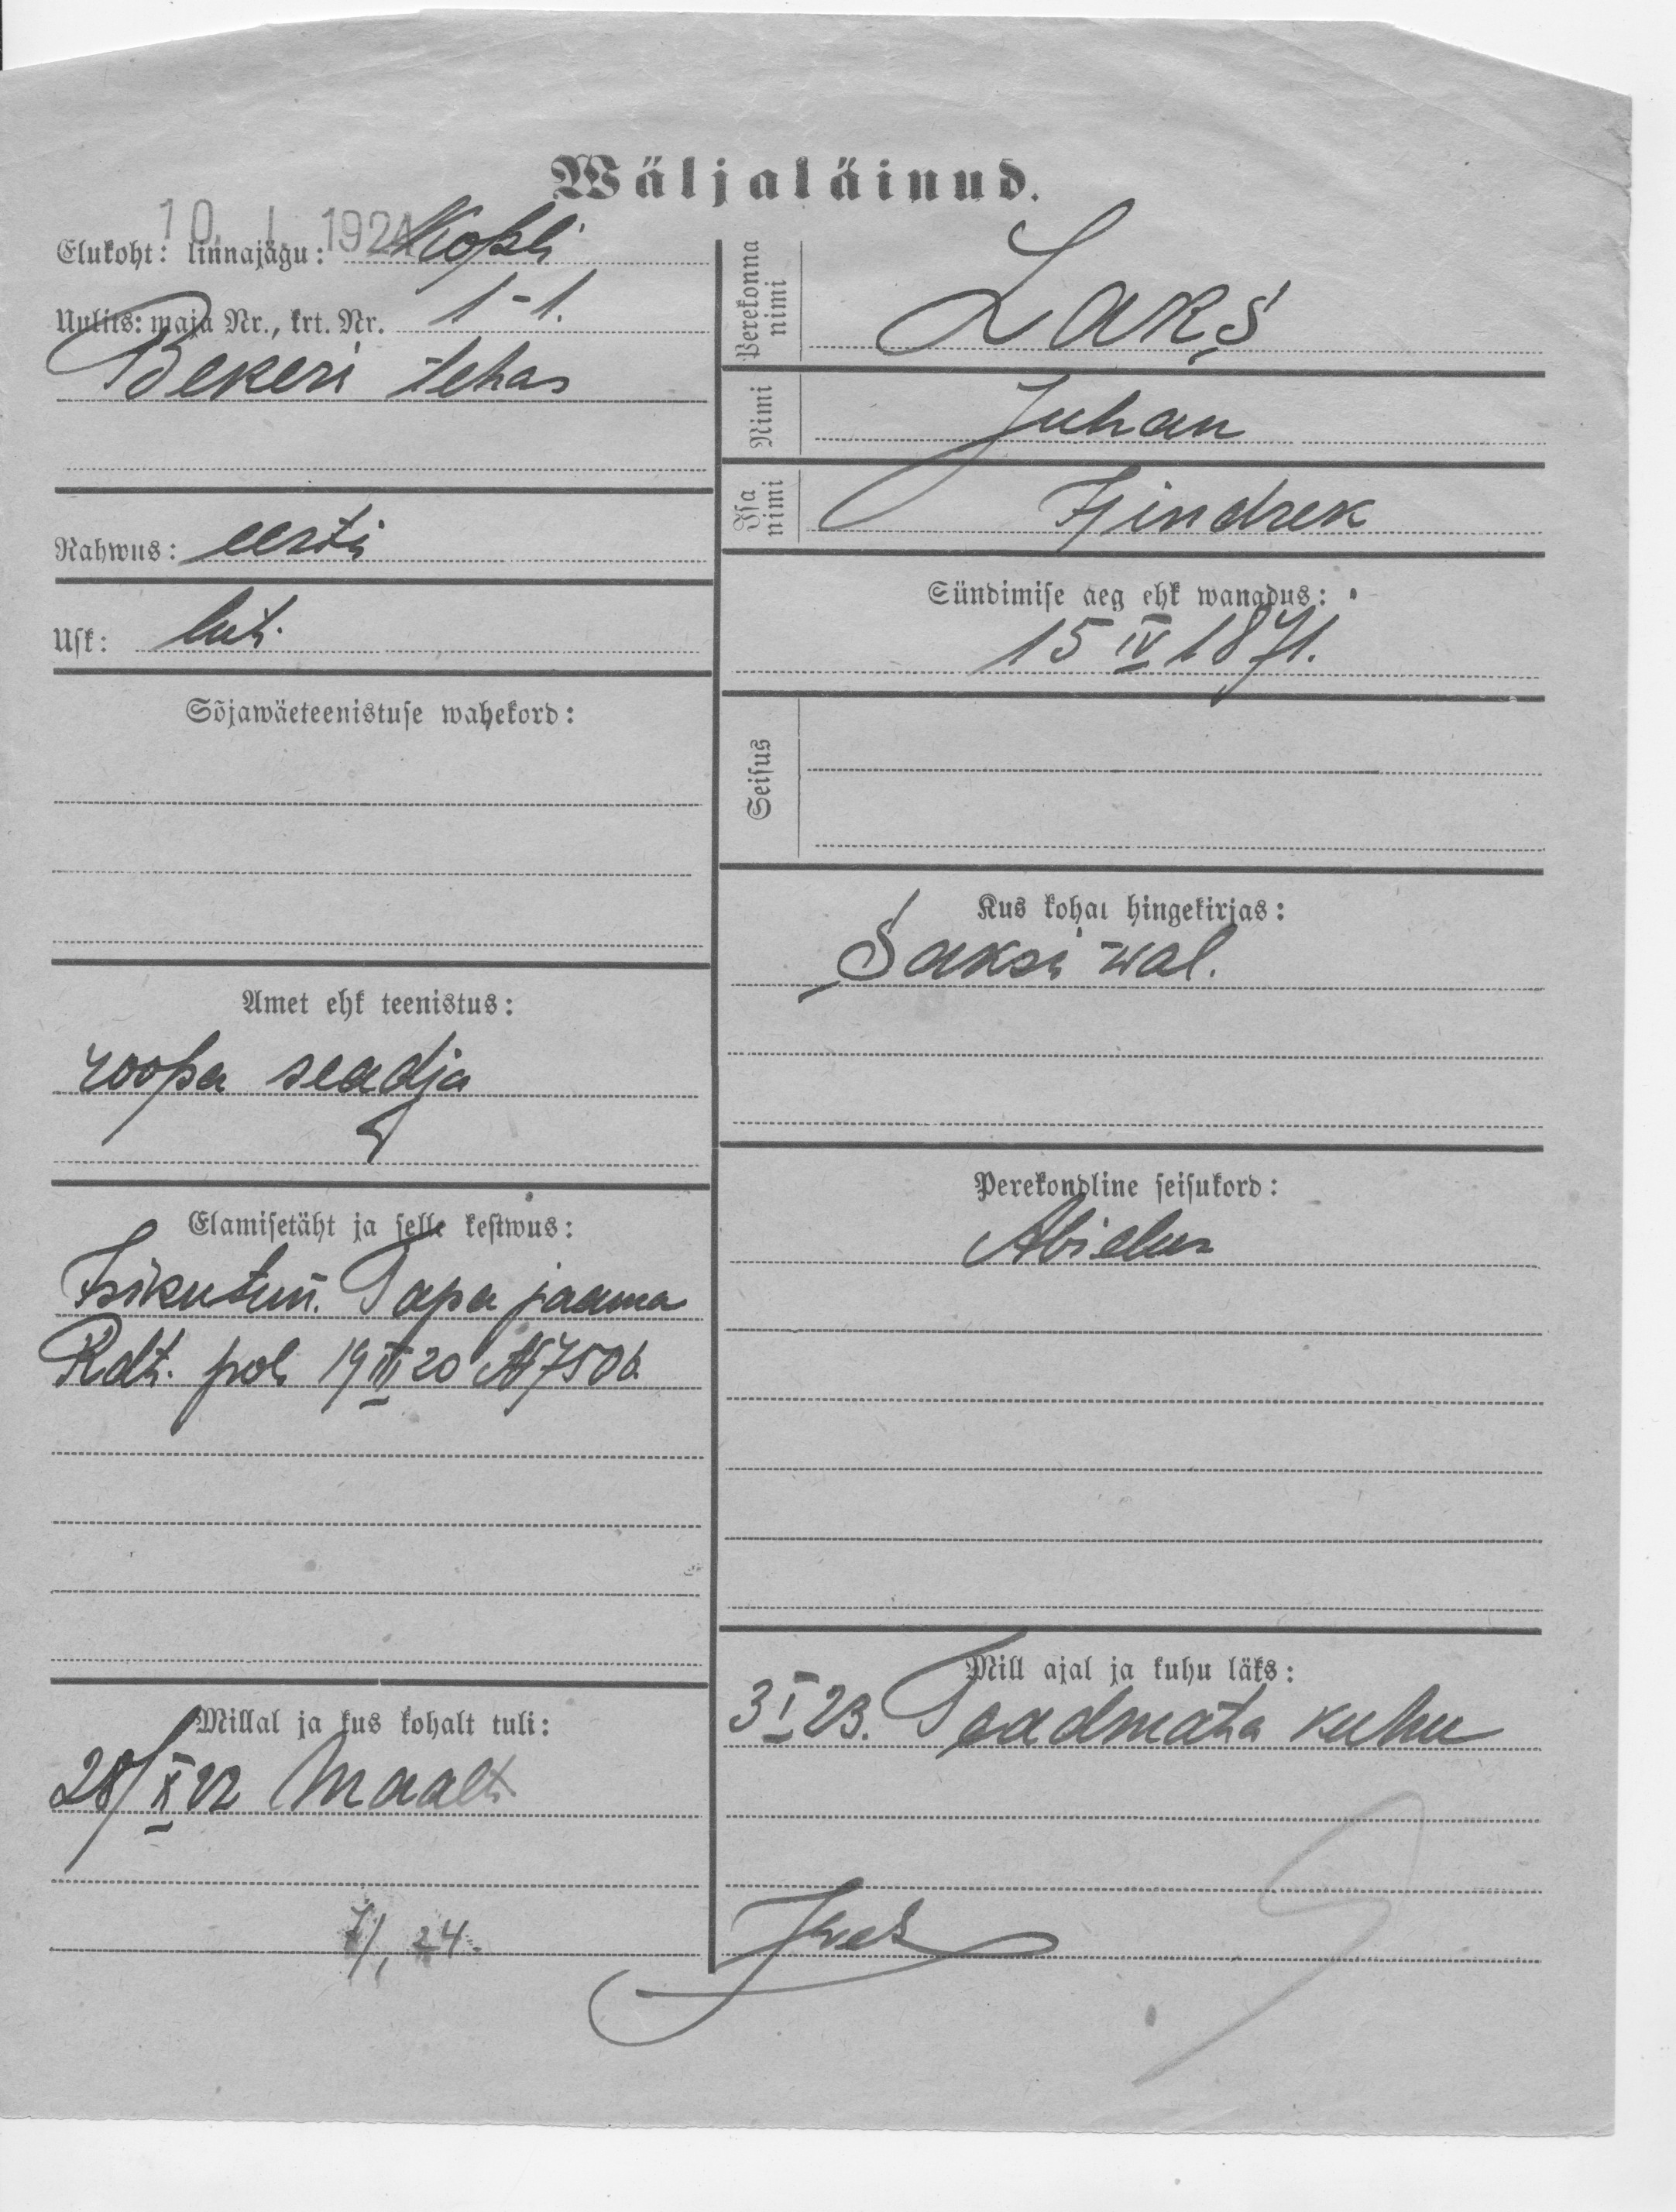 Wäljaläinud.
10. I. 1924
Elukoht: linnajagu: Kopli
Uulits: maja Nr., krt. Nr. 1-1.
Bekeri tehas
Rahwus: eesti
Usk: lut.
Sõjawäeteenistuse wahekord:
Amet ehk teenistus:
roopa seadja
Elamisetäht ja selle kestwus:
Isikutun. Tapa jaama
Rdt. pol. 19 III 20 № 7506
Millal ja kus kohalt tuli:
28/X 22 Maalt
7/I 24.
Perekonna nimi
Laks
Nimi
Juhan
Isa nimi
Hindrek
Sündimise aeg ehk wanadus:
15 IV 1871.
Seisus
Kus kohal hingekirjas:
Saksi wal.
Perekondline seisukord:
Abielus
Mill ajal ja kuhu läks:
3 I 23. Teadmata kuhu